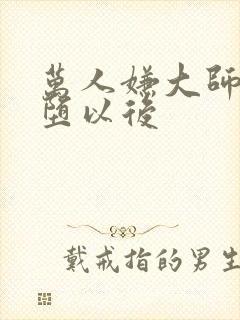 萬人嫌大師
墮以後
戴戒指的男生